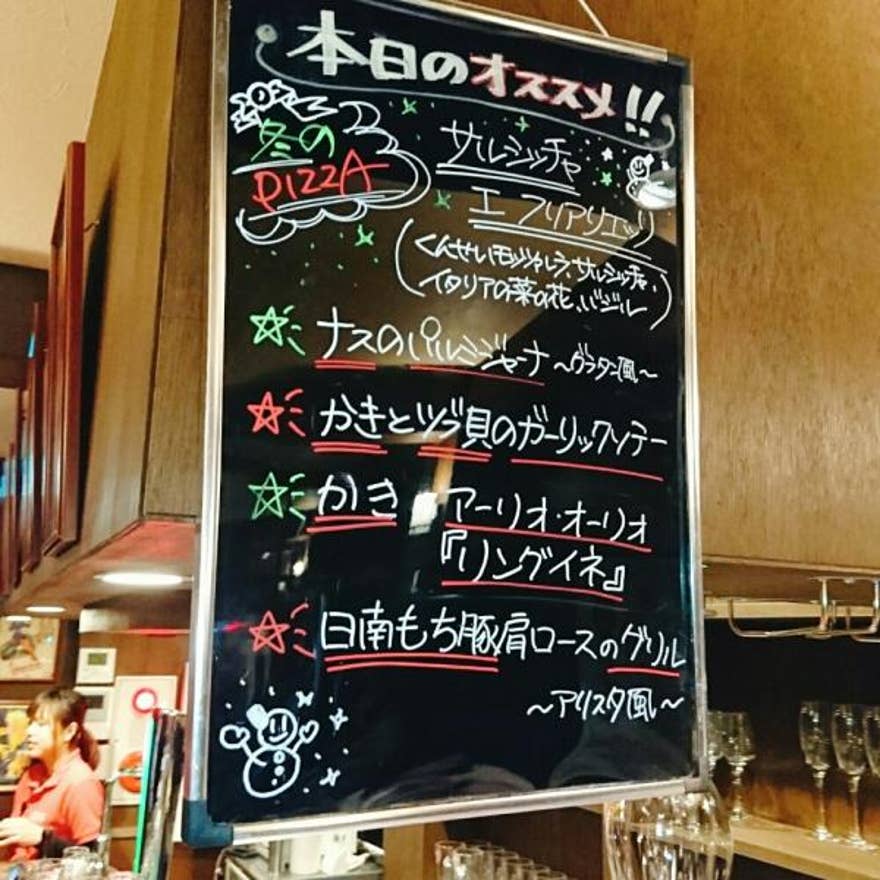 本日のオススメ!!
冬の
PIZZA
サルシッチャ
エ フリアリエッリ
(くんせいモッツァレラ、サルシッチャ、
イタリアの菜の花、バジル)
ナスのパルミジャーナ ～グラタン風～
かきとツブ貝のガーリックソテー
かき アーリオ・オーリオ
『リングイネ』
日南もち豚肩ロースのグリル
～アリスタ風～